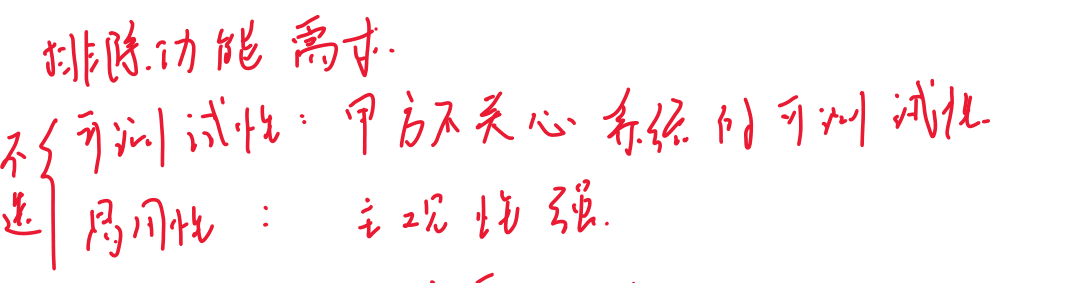 排除功能需求.
不选
可测试性: 甲方不关心系统的可测试性.
易用性: 主观性强.